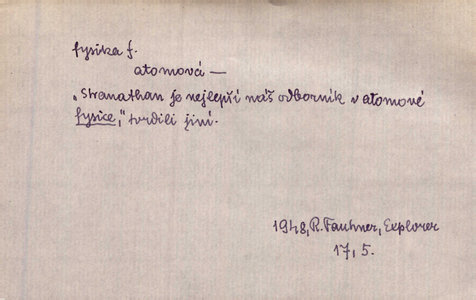 fysika f.
atomová —
„Stranathan je nejlepší náš odborník v atomové
fysice," tvrdili jiní.
1948, R. Faukner, Explorer
17, 5.